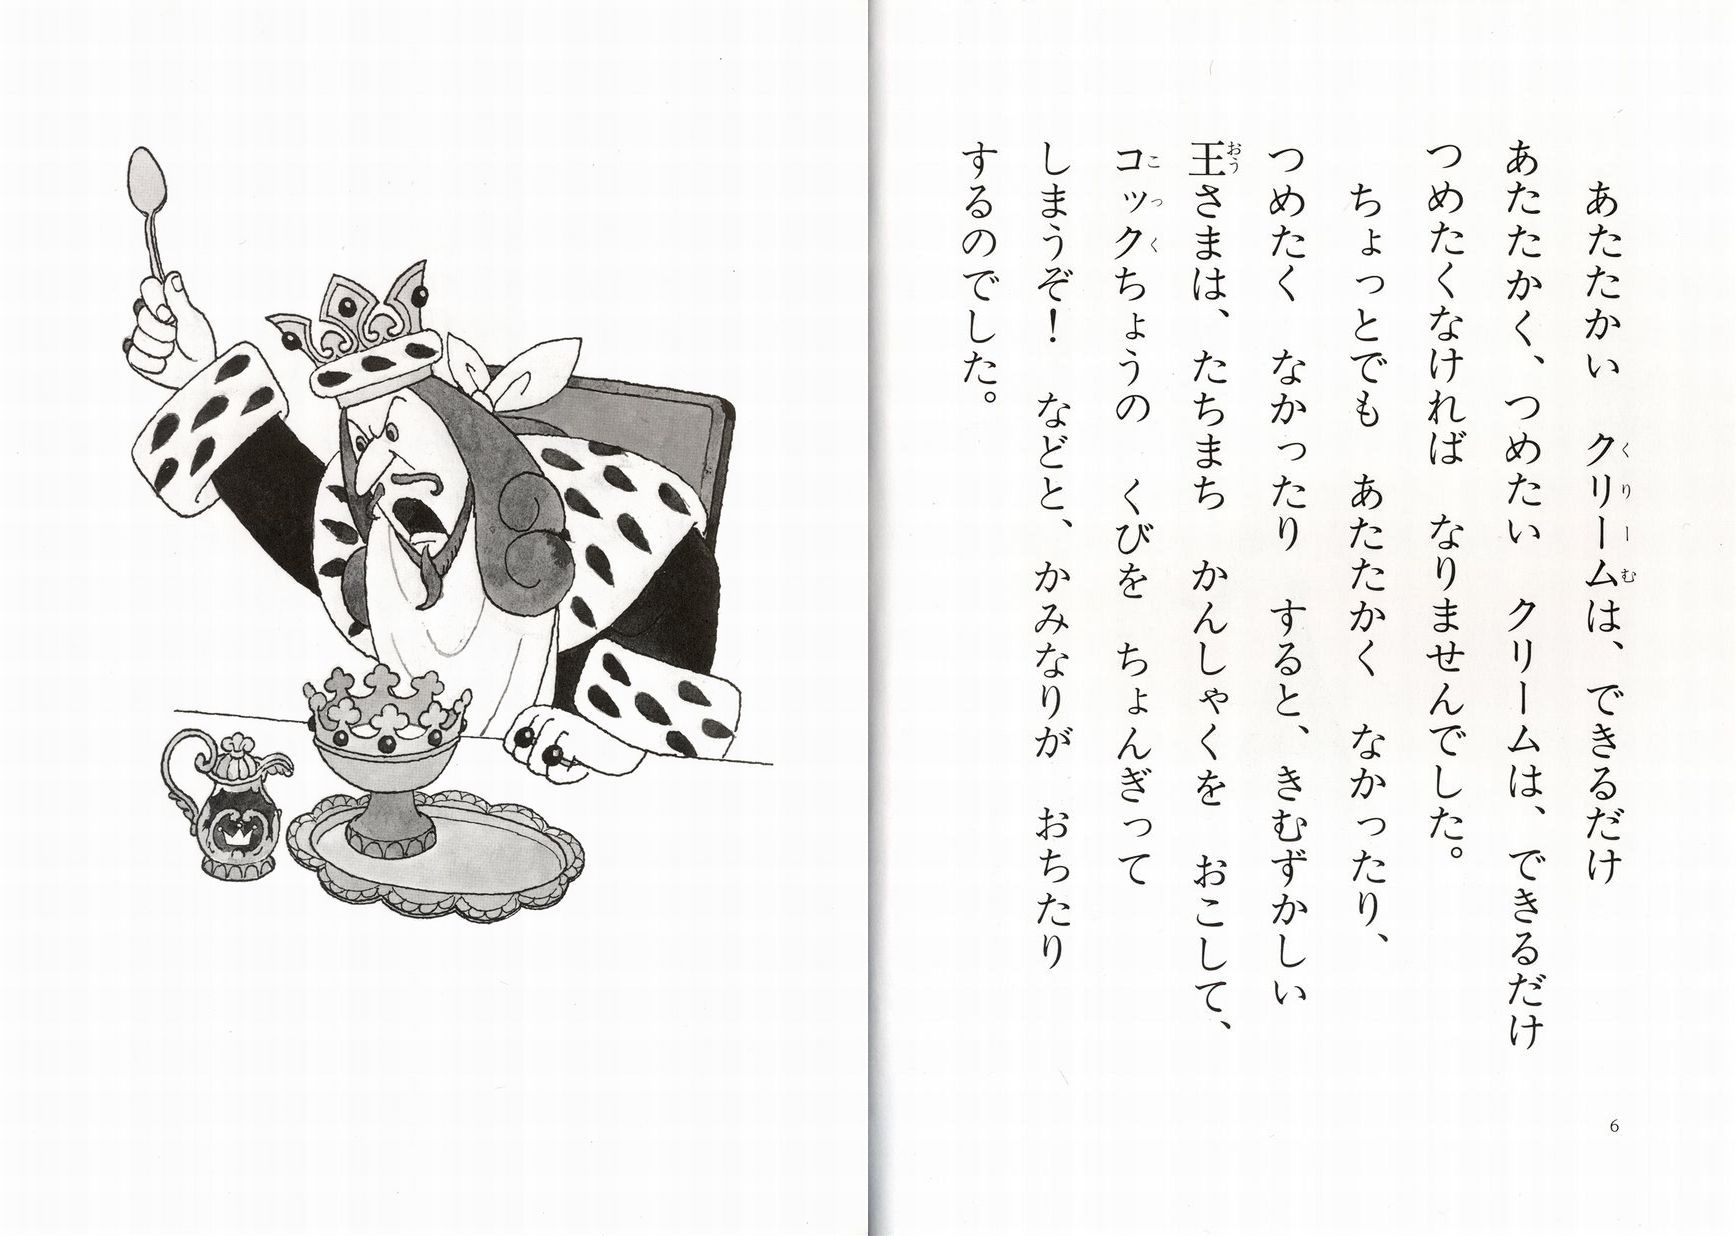 あたたかい　クリームは、できるだけ
あたたかく、つめたい　クリームは、できるだけ
つめたくなければ　なりませんでした。
ちょっとでも　あたたかく　なかったり、
つめたく　なかったり　すると、きむずかしい
王さまは、たちまち　かんしゃくを　おこして、
コックちょうの　くびを　ちょんぎって
しまうぞ！　などと、かみなりが　おちたり
するのでした。
6